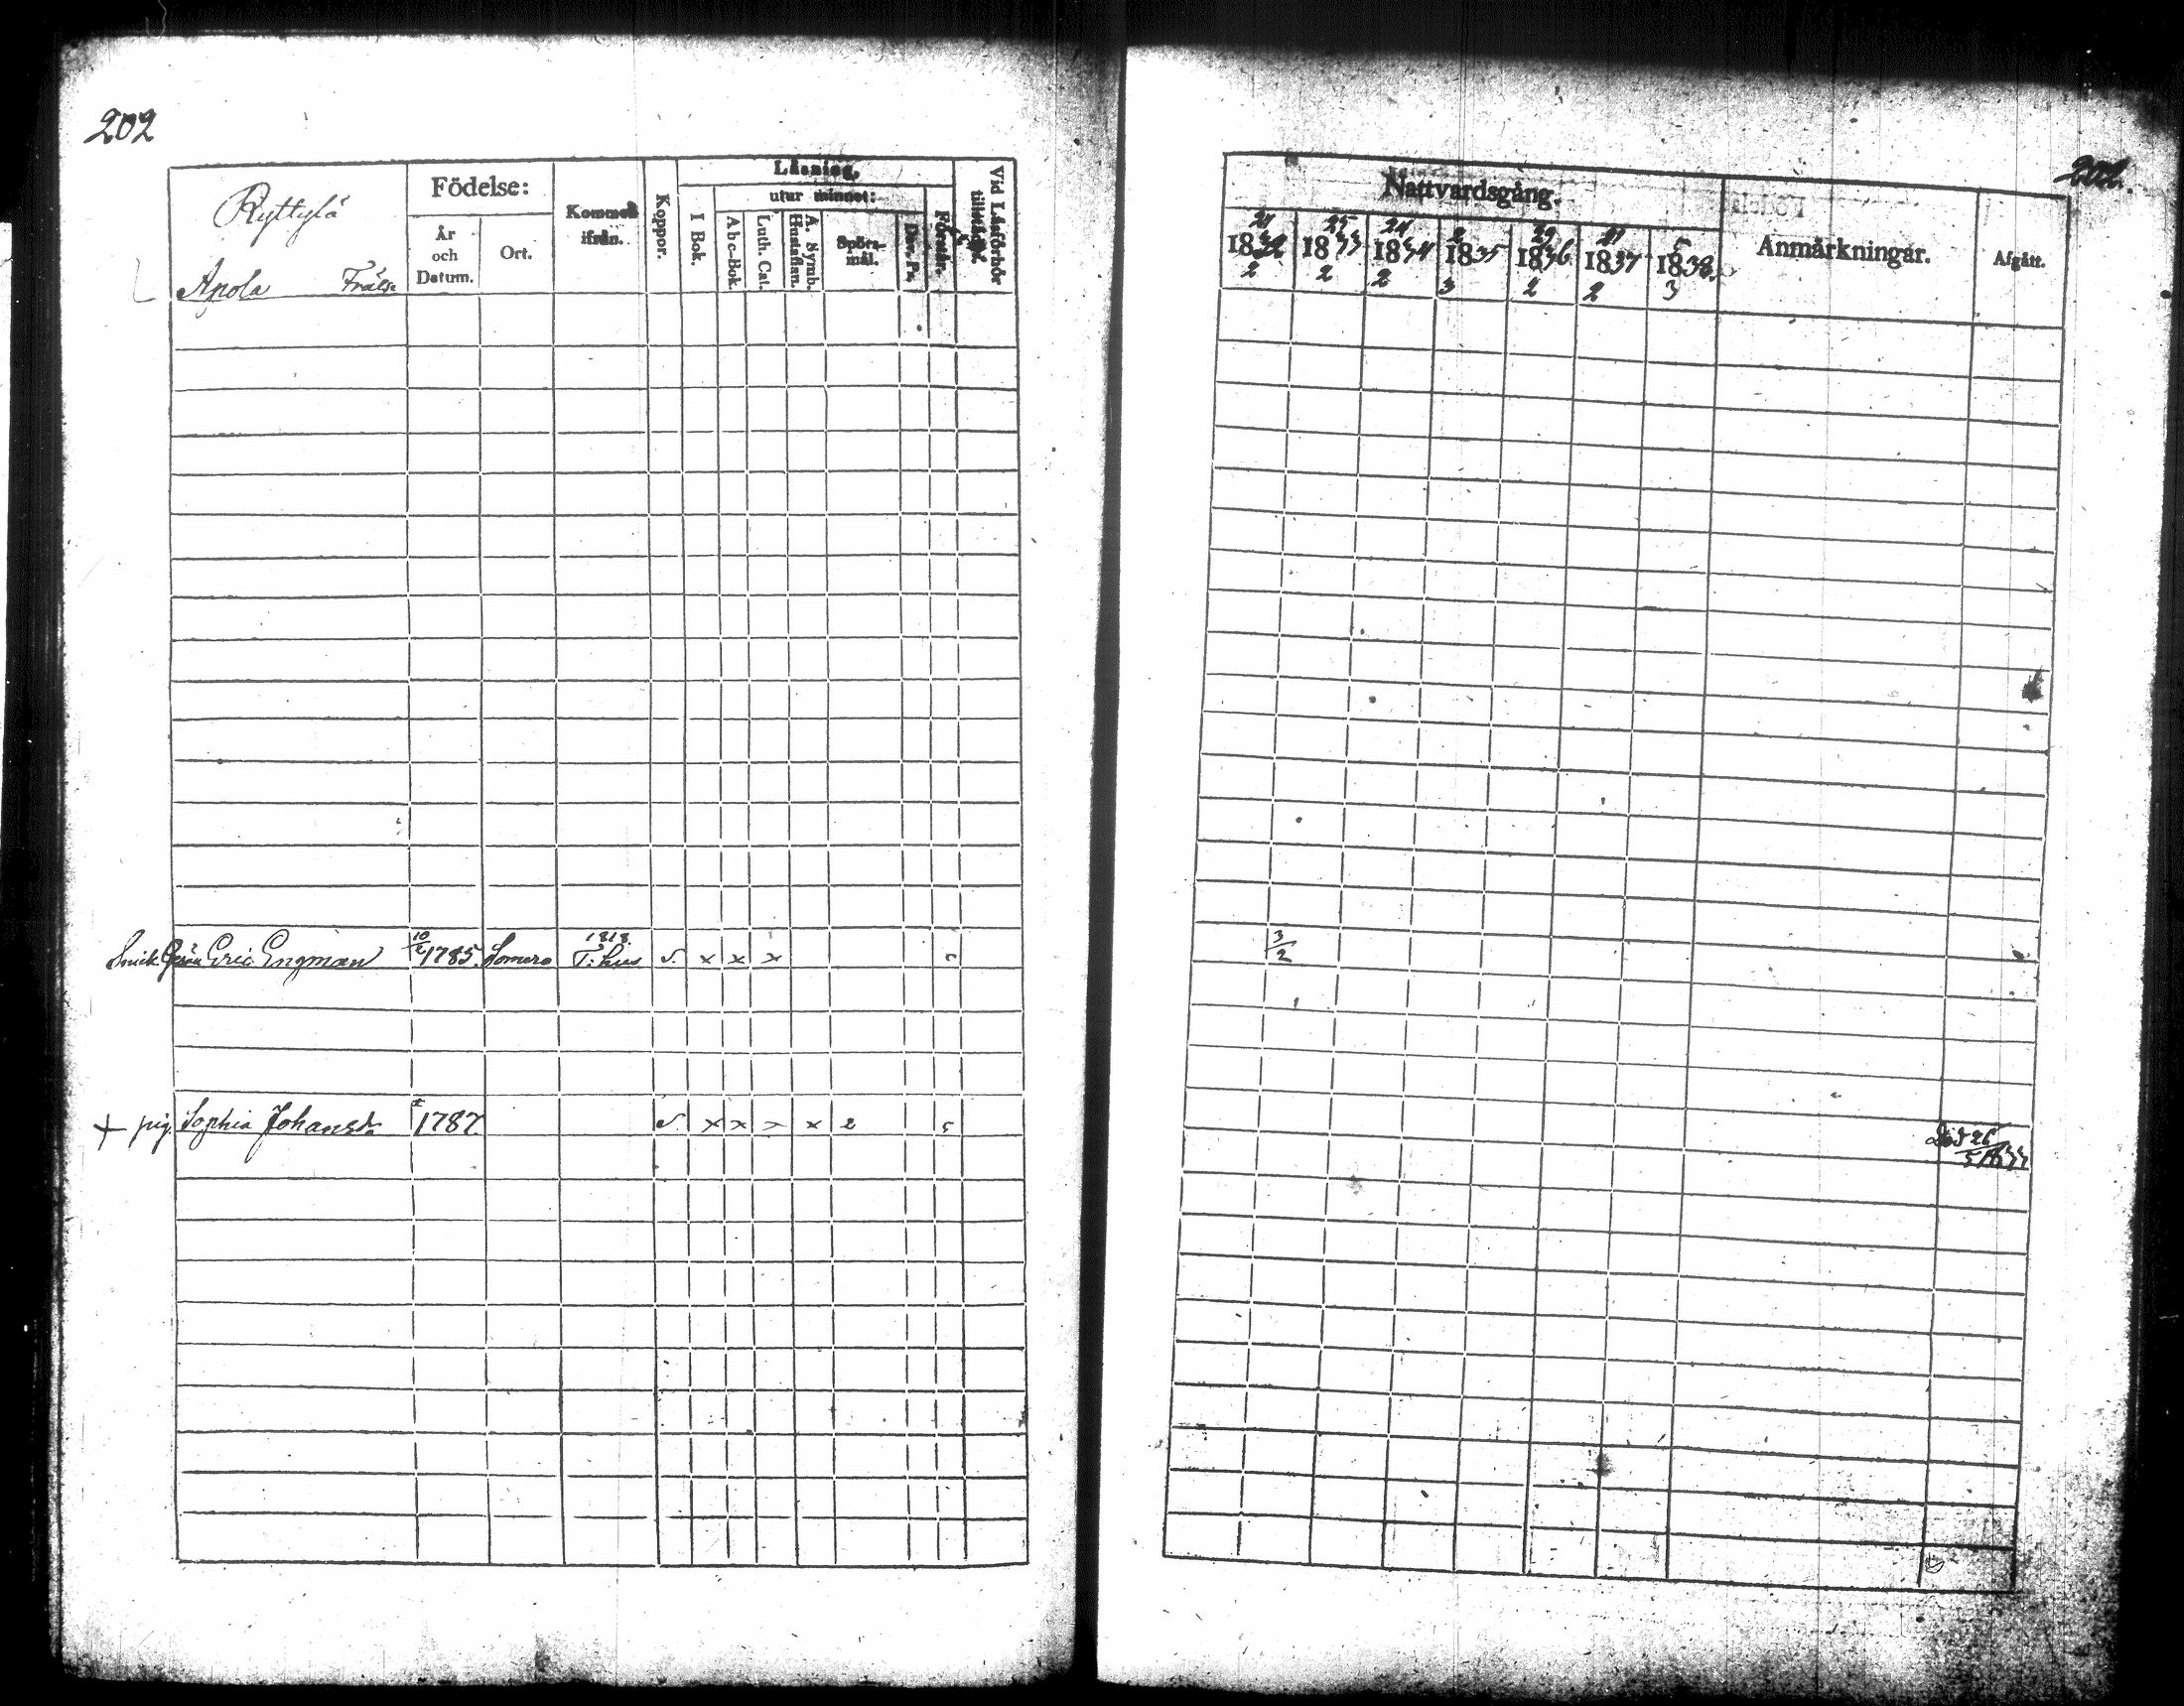 202
Ryttylä
Apola Frälse
Födelse:
År och Datum.
Ort.
Kommen ifrån.
Koppor.
Läsning.
utur minnet:
I Bok.
Abc-Bok.
Luth. Cat.
A. Symb. Hustaflan.
Spörsmål.
Dav. Ps.
Förstår.
Vid Läsförhör tillstädes.
Eric Engman 10/2 1785. Somero 1818. T:hus v. x x x
+ pig. Sophia Johansdr 1787. v. x x x x 2
202.
Nattvardsgång.
21 25 24 2 29 21 5
1832 1833 1834 1835 1836 1837 1838.
2 2 2 3 2 2 3
Anmärkningar.
Afgått.
3/2
Död 26/5 1833